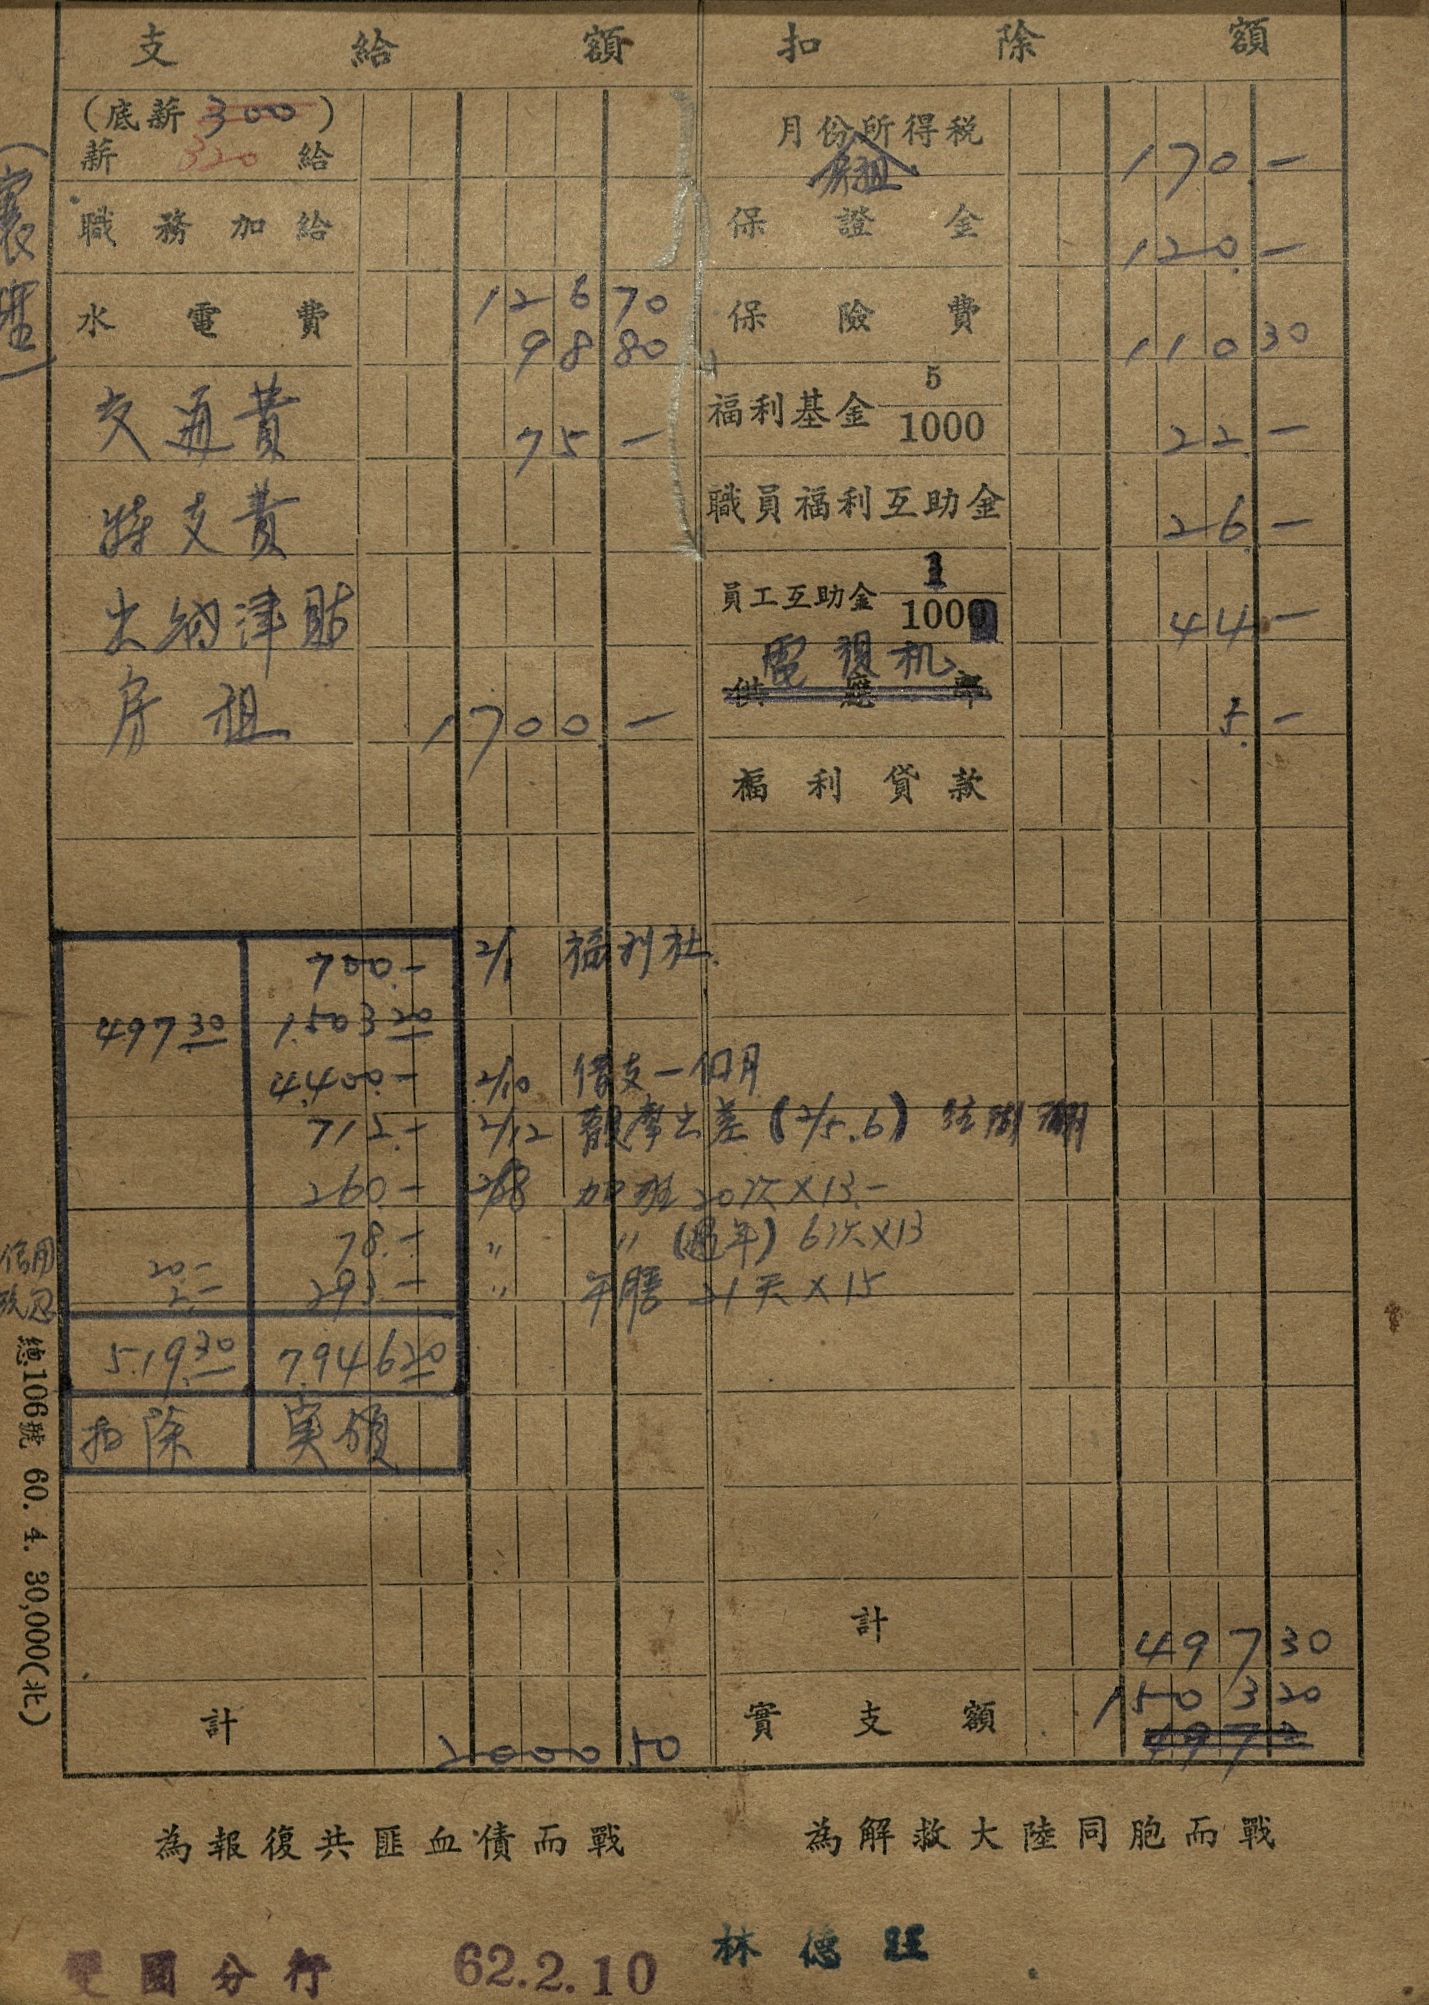 支給額
扣除額
(底薪300)
薪 320 給
月份所得税
房租
170.—
職務加給
保證金
120.—
水電費
126 70
98 80
保險費
110 30
交通費
75 —
福利基金 5/1000
22.—
特支費
職員福利互助金
26.—
出納津貼
員工互助金 1/1000
44.—
房租
1700.—
電視机
供應部
5.—
福利貸款
700.— 2/1 福利社.
497 30 1.503 20
4.400.— 2/10 借支一個月
712.— 2/12 觀摩出差(2/5.6)
260.— 加班 20次×13.—
78.— 〃 〃 (過年) 6次×13
20.—
2.— 293.— 〃 午膳 21天×15
信用
519.30 7.946 20
扣除 実領
計
497 30
計
2000 50
實支額
1503 20
497 3
為報復共匪血債而戰
為解救大陸同胞而戰
雙園分行 62.2.10 林德旺
總106號 60. 4. 30,000(北)